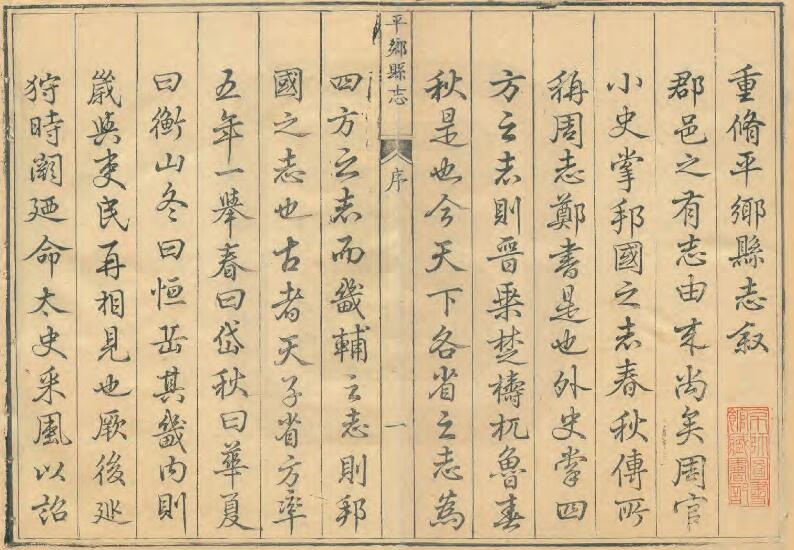 重脩平鄉縣志敘
京師圖書
館藏書記
郡邑之有志由来尚矣周官
小史掌邦國之志春秋傳所
稱周志鄭書是也外史掌四
方之志則晉乗楚檮杌魯春
秋是也今天下各省之志為
平鄉縣志
序
一
四方之志而畿輔之志則邦
國之志也古者天子省方率
五年一舉春曰岱秋曰華夏
曰衡山冬曰恒岳其畿內則
歲與吏民再相見也厥後巡
狩時闕廼命太史采風以詔